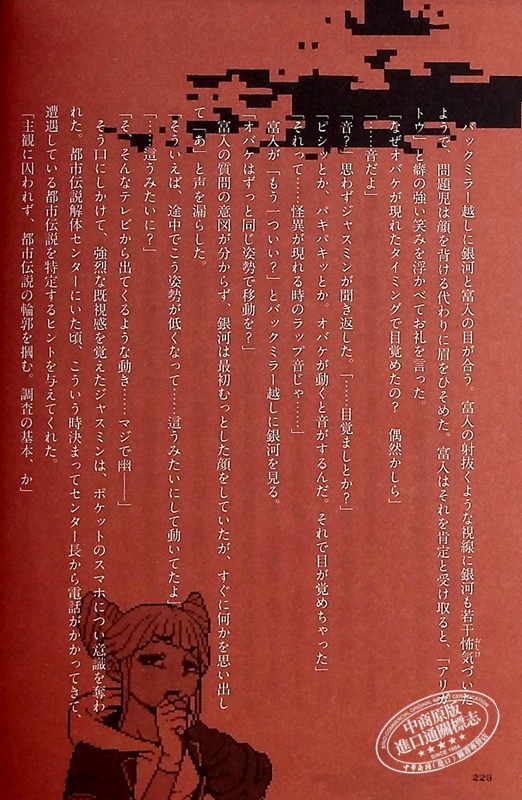 バックミラー越しに銀河と富入の目が合う。富入の射抜くような視線に銀河も若干怖気づいた
おじけ
ようで、問題児は顔を背ける代わりに眉をひそめた。富入はそれを肯定と受け取ると、「アリガ
トウ」と癖の強い笑みを浮かべてお礼を言った。
「なぜオバケが現れたタイミングで目覚めたの? 偶然かしら」
「……音だよ」
「音?」思わずジャスミンが聞き返した。「……目覚ましとか?」
「ビシッとか、バキバキッとか。オバケが動くと音がするんだ。それで目が覚めちゃった」
「それって……怪異が現れる時のラップ音じゃ……」
富入が「もう一ついい?」とバックミラー越しに銀河を見る。
「オバケはずっと同じ姿勢で移動を?」
富入の質問の意図が分からず、銀河は最初むっとした顔をしていたが、すぐに何かを思い出し
て「あ」と声を漏らした。
「そういえば、途中でこう姿勢が低くなって……這うみたいにして動いてたよ」
「……這うみたいに?」
「そ、そんなテレビから出てくるような動き……マジで幽――」
そう口にしかけて、強烈な既視感を覚えたジャスミンは、ポケットのスマホについ意識を奪わ
れた。都市伝説解体センターにいた頃、こういう時決まってセンター長から電話がかかってきて、
遭遇している都市伝説を特定するヒントを与えてくれた。
「主観に囚われず、都市伝説の輪郭を掴む。調査の基本、か」
228
中商原版
進口通關標志
SINCE 1984